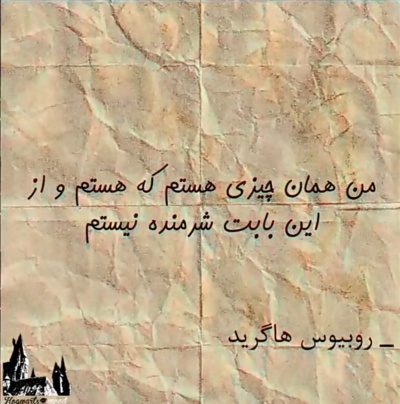 من همان چیزی هستم که هستم و از
این بابت شرمنده نیستم
_ روبیوس هاگرید
Hogwarts